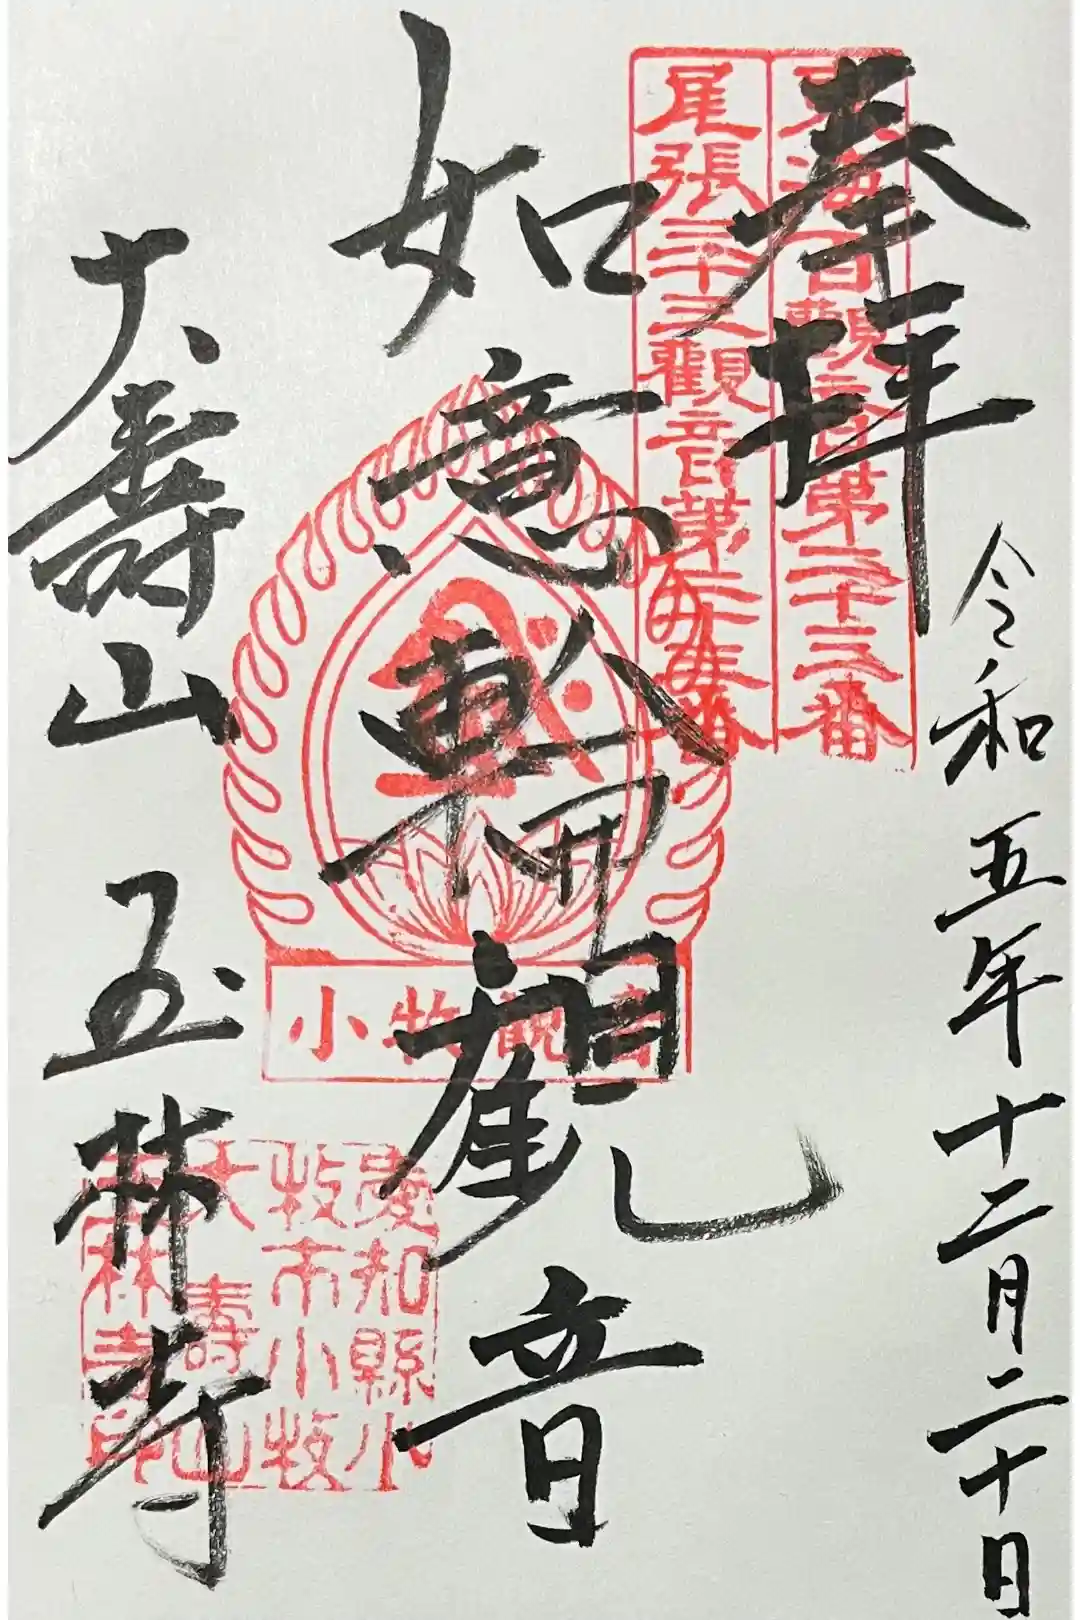 奉拝
令和五年十二月二十日
東海百観音第二十三番
尾張三十三観音第二十五番
如意輪観音
小牧観音
大寿山玉林寺
愛知縣小
牧市小牧
大壽山
玉林寺印